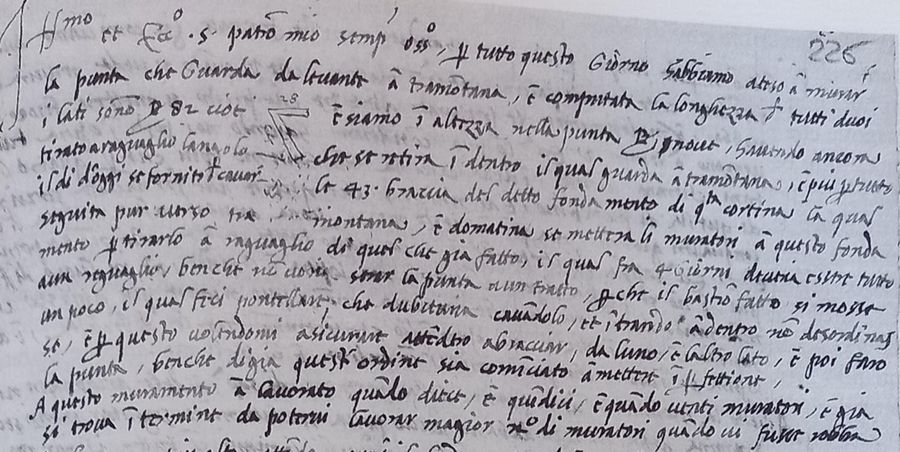 226
Ill.mo et Ecc.o S. patrō mio semp. oss.o, p tutto questo Giorno habbiamo ateso ā murar
la punta che Guarda da levante ā tramōtana, ē computata la longhezza tutti duoi
i lati sonno 82 cioè 28 ē siamo ī altezza nella punta nove, havendo ancora
tirato a raguaglio langolo che se retira ī dentro il qual guarda ā tramōtana, ē più p tutto
il dì d'oggi se fornito cavar le 43 braccia del detto fondamento di q.ta cortina la qual
seguita pur verso tra montana, ē domatina se mettera li muratori ā questo fonda
mento p tirarlo ā raguaglio di quel che già fatto, il qual fra 4 Giorni deveria essere tutto
aun reguaglio, benche nō voria serar la punta aun tratto, pche il bastiō fatto si mosse
un poco, il qual feci pontellare, che dubitava cavādolo, et ītrando ādentro nō desordinas
se, ē p questo volendomi asicurare attēdero abracciar, da luno, ē laltro lato, ē poi faro
la punta, benche digia quest' ordine sia comīciato āmettere ī pfettione,
A questo muramento ā lavorato quādo diece, ē quīdici, ē quādo venti muratori, ē già
si trova ī termine da potervi lavorar magior n.o di muratori quādo vi fusse robba